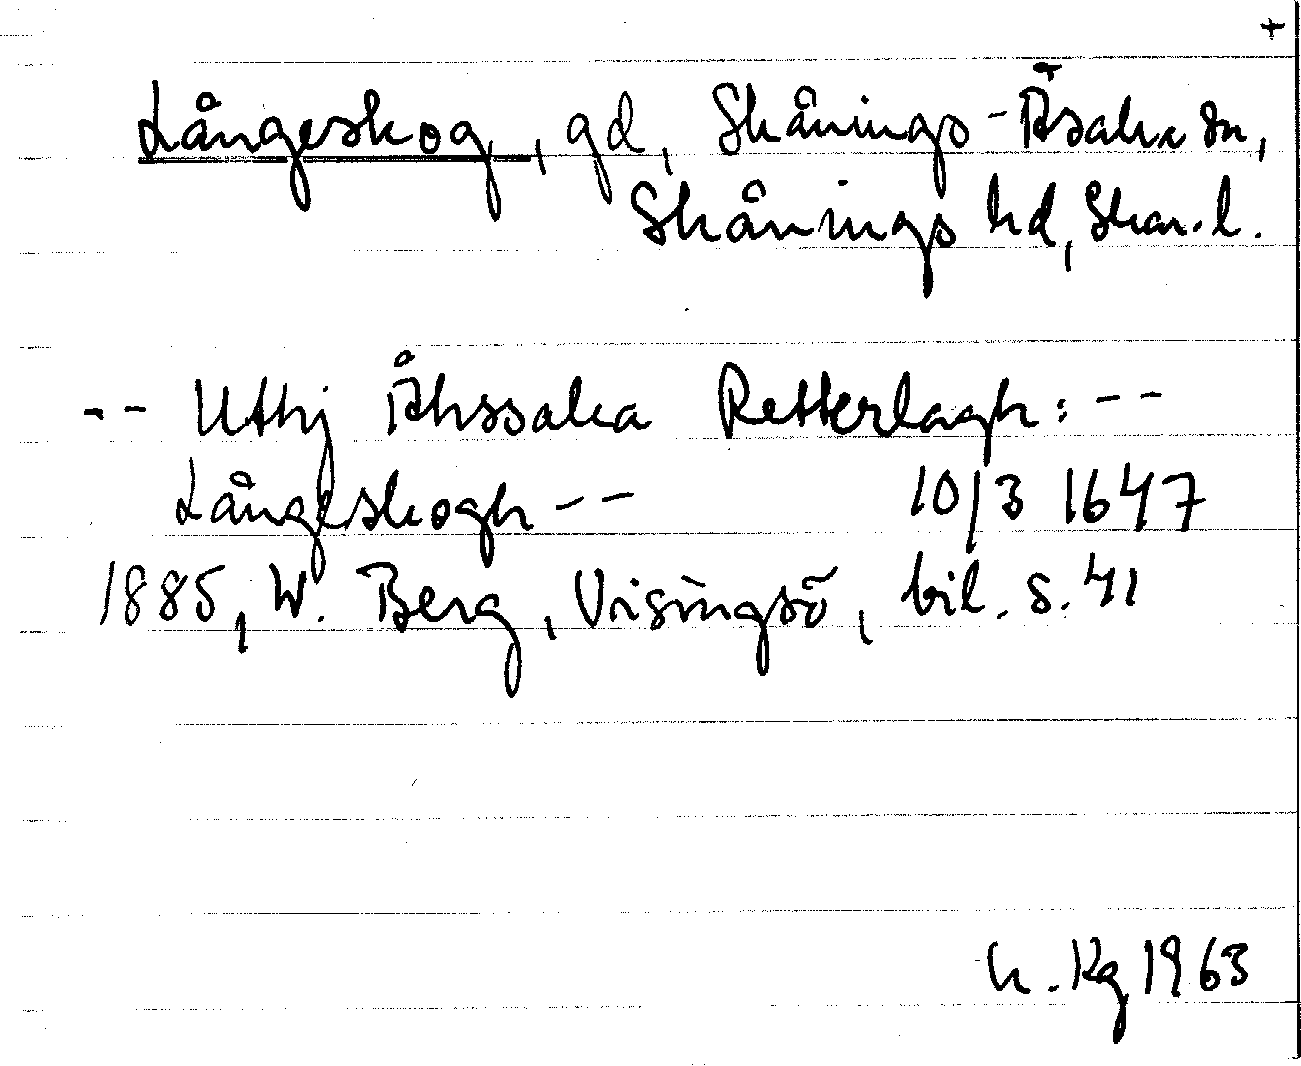 +
Långeskog, gd, Skånings-Åsaka sn,
Skånings hd, Skar. l.
-- Uthj Åhssaka Retterlagh: --
Långeskogh -- 10/3 1647
1885, W. Berg, Visingsö, bil. s. 41
h. Kg 1963